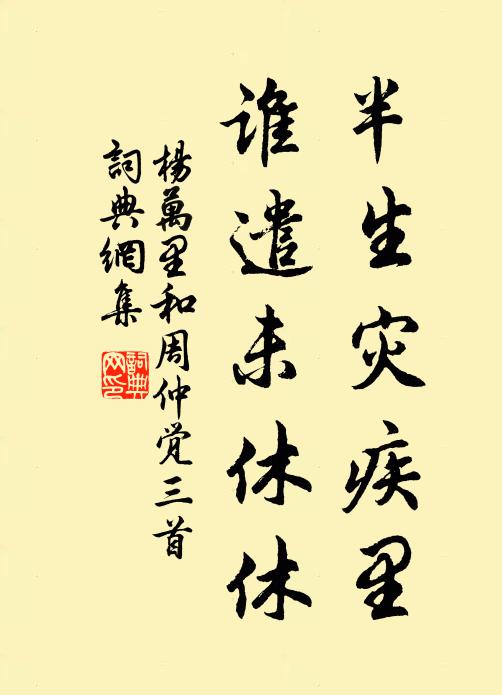 半生灾疾里
谁遣未休休
楊萬里和周仲觉三首
詞典網集
詞典
网印